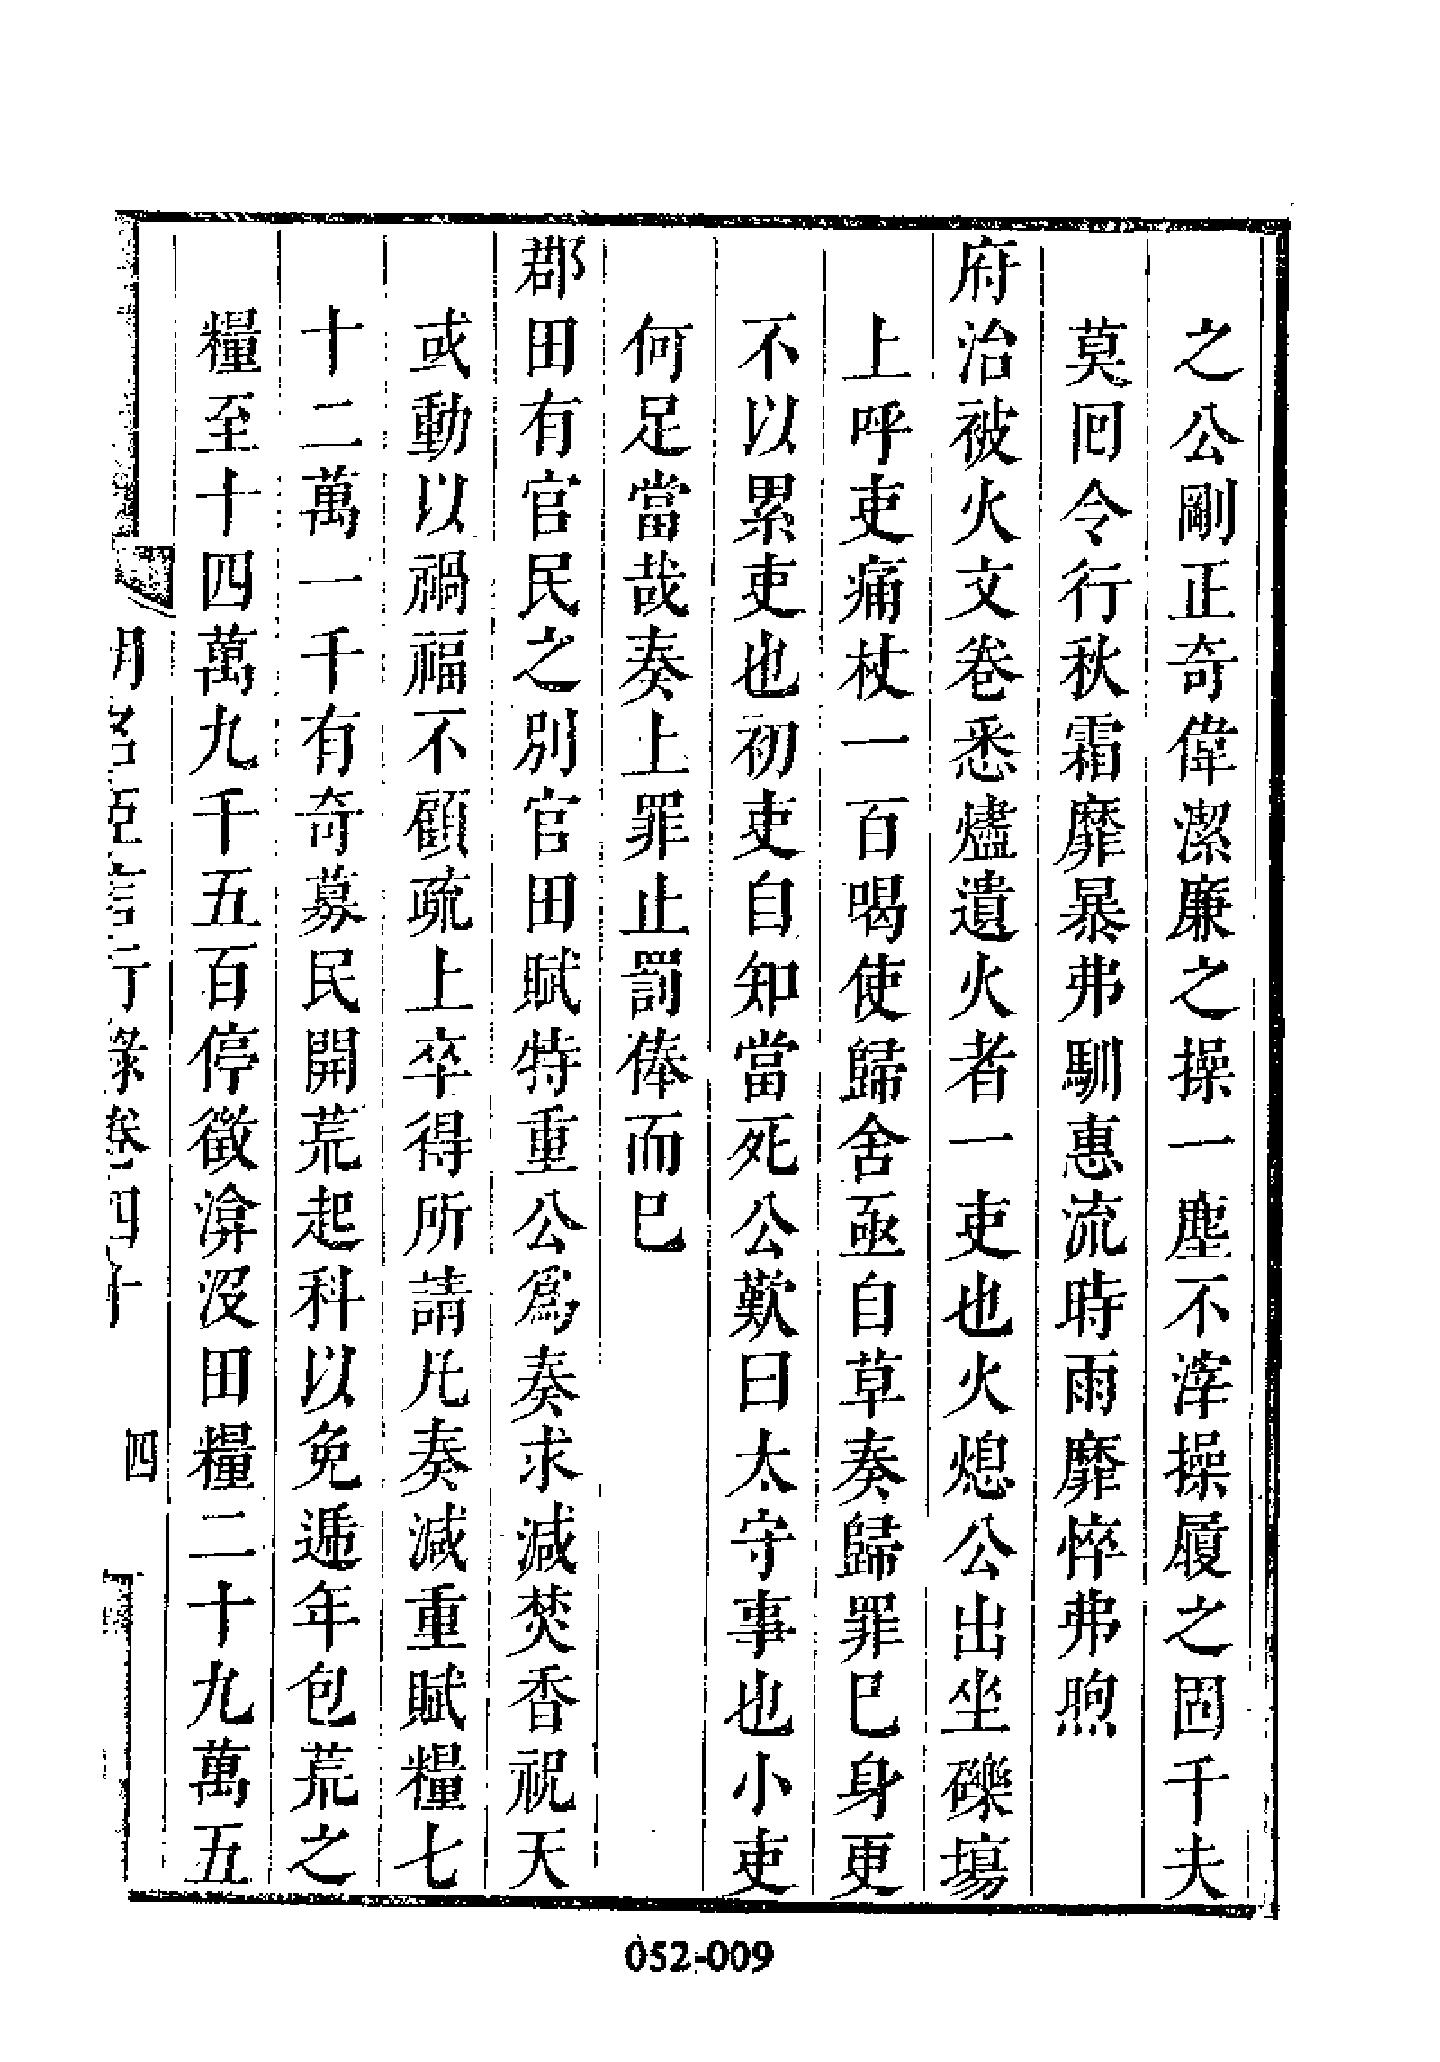 之公剛正奇偉潔廉之操一塵不滓操履之固千夫
莫囘令行秋霜靡暴弗馴惠流時雨靡悴弗煦
府治被火文卷悉燼遺火者一吏也火熄公出坐礫場
上呼吏痛杖一百喝使歸舍亟自草奏歸罪巳身更
不以累吏也初吏自知當死公歎曰太守事也小吏
何足當哉奏上罪止罰俸而巳
郡田有官民之別官田賦特重公爲奏求減焚香祝天
或動以禍福不顧疏上卒得所請凡奏減重賦糧七
十二萬一千有奇募民開荒起科以免逓年包荒之
糧至十四萬九千五百停徵渰沒田糧二十九萬五
明名臣言行錄卷四十
四
052-009